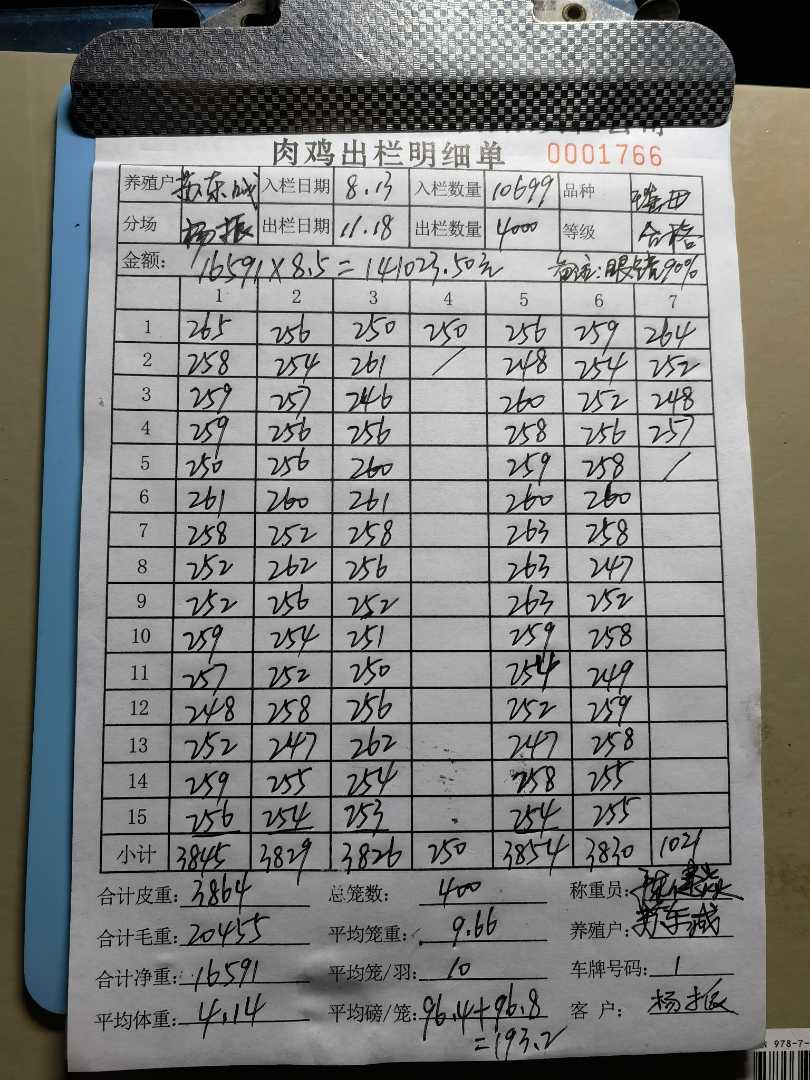 肉鸡出栏明细单 0001766
养殖户 苏东城 入栏日期 8.13 入栏数量 10699 品种
分场 杨振 出栏日期 11.18 出栏数量 4000 等级 合格
金额: 16591×8.5=141023.50元 备注:眼镜90%
1 2 3 4 5 6 7
1 265 256 250 250 256 259 264
2 258 254 261 / 248 254 252
3 259 257 246 260 252 248
4 259 256 256 258 256 257
5 250 256 260 259 258 /
6 261 260 261 260 260
7 258 252 258 263 258
8 252 262 256 263 247
9 252 256 252 263 252
10 259 254 251 259 258
11 257 252 250 254 249
12 248 258 256 252 259
13 252 247 262 247 258
14 259 255 254 258 255
15 256 254 253 254 255
小计 3845 3829 3826 250 3854 3830 1021
合计皮重: 3864 总笼数: 400 称重员:
合计毛重: 20455 平均笼重: 9.66 养殖户: 苏东城
合计净重: 16591 平均笼/羽: 10 车牌号码: 1
平均体重: 4.14 平均磅/笼: 96.4+96.8 客户: 杨振
=193.2
978-7-